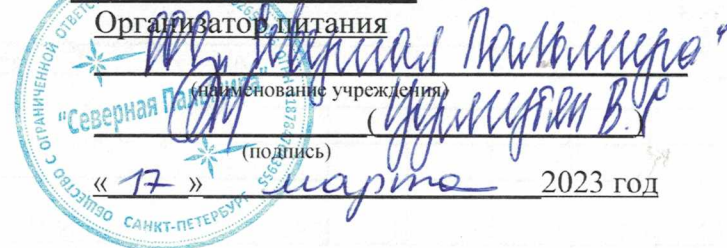 Организатор питания
ООО "Северная Пальмира"
(наименование учреждения)
(подпись)
« 17 » марта 2023 год
ОБЩЕСТВО С ОГРАНИЧЕННОЙ ОТВЕТС
"Северная Пальмира"
САНКТ-ПЕТЕРБУРГ